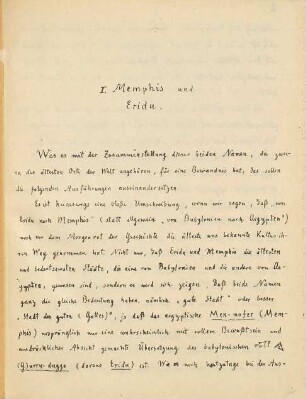 I. Memphis und
Eridu.
Was es mit der Zusammenstellung dieser beiden Namen, die zween
der ältesten Orte der Welt angehören, für eine Bewandtnis hat, das sollen
die folgenden Ausführungen auseinandersetzen.
Es ist keineswegs eine bloße Umschreibung, wenn wir sagen, daß „von
Eridu nach Memphis" (statt allgemein „von Babylonien nach Aegypten")
noch vor dem Morgenrot der Geschichte die älteste uns bekannte Kultur ih-
ren Weg genommen hat. Nicht nur, daß Eridu und Memphis die ältesten
und bedeutsamsten Städte, die eine von Babylonien und die andere von Ae-
gypten, gewesen sind, sondern es wird sich zeigen, daß beide Namen
ganz die gleiche Bedeutung haben, nämlich „gute Stadt" oder besser
„Stadt des guten (Gottes)", ja daß das aegyptische Men-nofer (Mem-
phis) ursprünglich nur eine wahrscheinlich mit vollem Bewußtsein und
ausdrücklicher Absicht gemachte Übersetzung des babylonischen
dugga (daraus Eridu) ist. Wie man heutzutage bei der Aus-